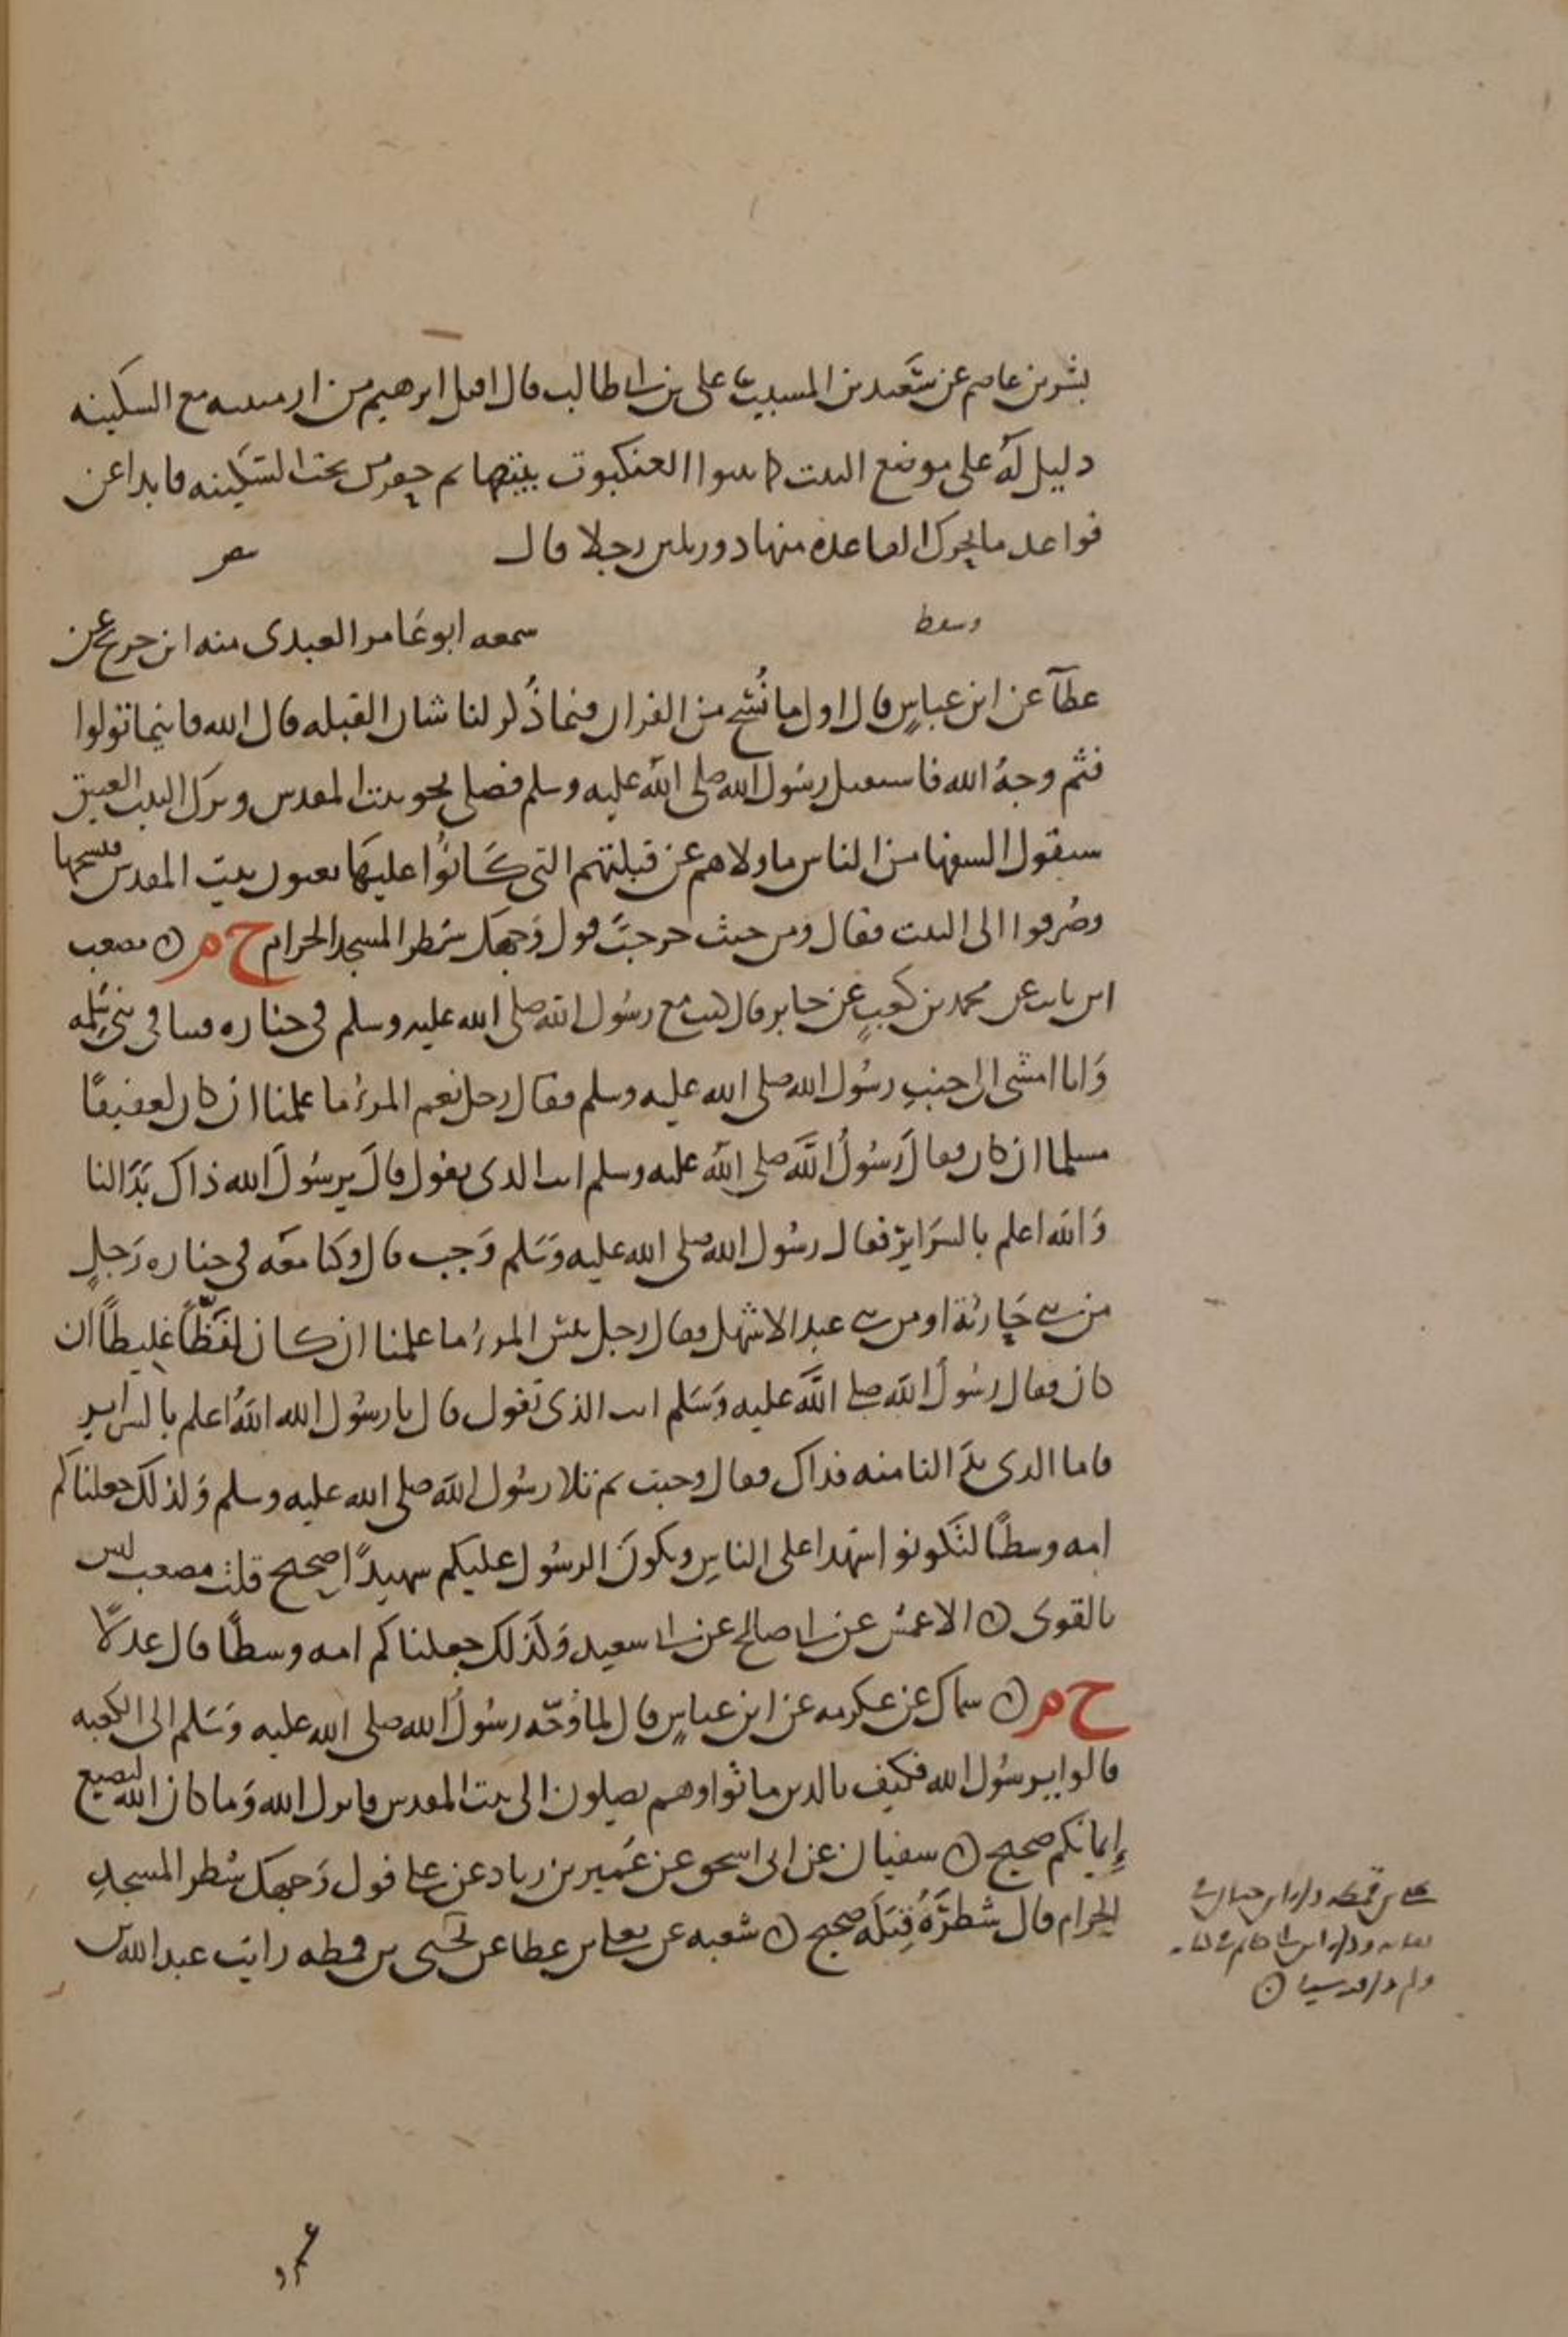 بشر بن عاصم عن سعيد بن المسيب عن على بن ابى طالب قال اقبل ابرهيم من ارمينيه مع السكينه
دليل له على موضع البيت كما تبنوا العنكبوت بيتها ثم حفر من تحت السكينه فابدا عن
قواعد ما يحرك القاعده منها دون ثلثين رجلا قال
وسقط سمعه ابو عامر العبدى منه ابن جريج عن
عطآ عن ابن عباس قال اول ما نسخ من القران فيما ذكر لنا شان القبله قال الله فاينما تولوا
فثم وجه الله فاستقبل رسول الله صلى الله عليه وسلم فصلى نحو بيت المقدس وترك البيت العتيق
سيقول السفها من الناس ما ولاهم عن قبلتهم التى كانوا عليها يعنون بيت المقدس فنسخها
وصرفوا الى البيت فقال ومن حيث خرجت فول وجهك شطر المسجد الحرام خ م ن مصعب
ابن ثابت عن محمد بن كعب عن جابر قال كنت مع رسول الله صلى الله عليه وسلم فى جنازه فينا فى بنى سلمه
وانا امشى الى جنب رسول الله صلى الله عليه وسلم فقال رجل نعم المرء ما علمنا ان كان لعفيفا
مسلما ان كان فقال رسول الله صلى الله عليه وسلم انت الذى يقول قال يرسول الله ذاك بدا لنا
والله اعلم بالسراير فقال رسول الله صلى الله عليه وسلم وجبت قال وكنا معه فى جنازه رجل
من بنى حارثة او من بنى عبد الاشهل فقال رجل بئس المرء ما علمنا ان كان لفظا غليظا ان
كان فقال رسول الله صلى الله عليه وسلم انت الذى تقول قال يا رسول الله الله اعلم بالسراير
فاما الذى بدا لنا منه فذاك فقال وجبت ثم تلا رسول الله صلى الله عليه وسلم وكذلك جعلناكم
امه وسطا لتكونوا شهدا على الناس ويكون الرسول عليكم شهيدا صحيح قلت مصعب ليس
بالقوى ن الاعمش عن ابى صالح عن ابى سعيد وكذلك جعلناكم امه وسطا قال عدلا
خ م ن سماك عن عكرمه عن ابن عباس قال لما وجه رسول الله صلى الله عليه وسلم الى الكعبه
قالوا يرسول الله فكيف بالذين ماتوا وهم يصلون الى بيت المقدس فانزل الله وما كان الله ليضيع
إيمانكم صحيح ن سفيان عن ابى اسحق عن عمير بن زياد عن على فول وجهك شطر المسجد
الحرام قال شطره قبله صحيح ن شعبه عن يعلى بن عطا عن يحيى بن قمطه رايت عبد الله بن